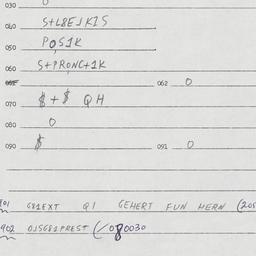 030 0
040 S+L8EJKIS
050 POS1K
060 S+PRONC+1K
062 0
070 $+$ QH
080 0
090 $ 091 0
901 G81EXT QI GEHERT FUN HERN (205
902 OJSG81PREST (/080030